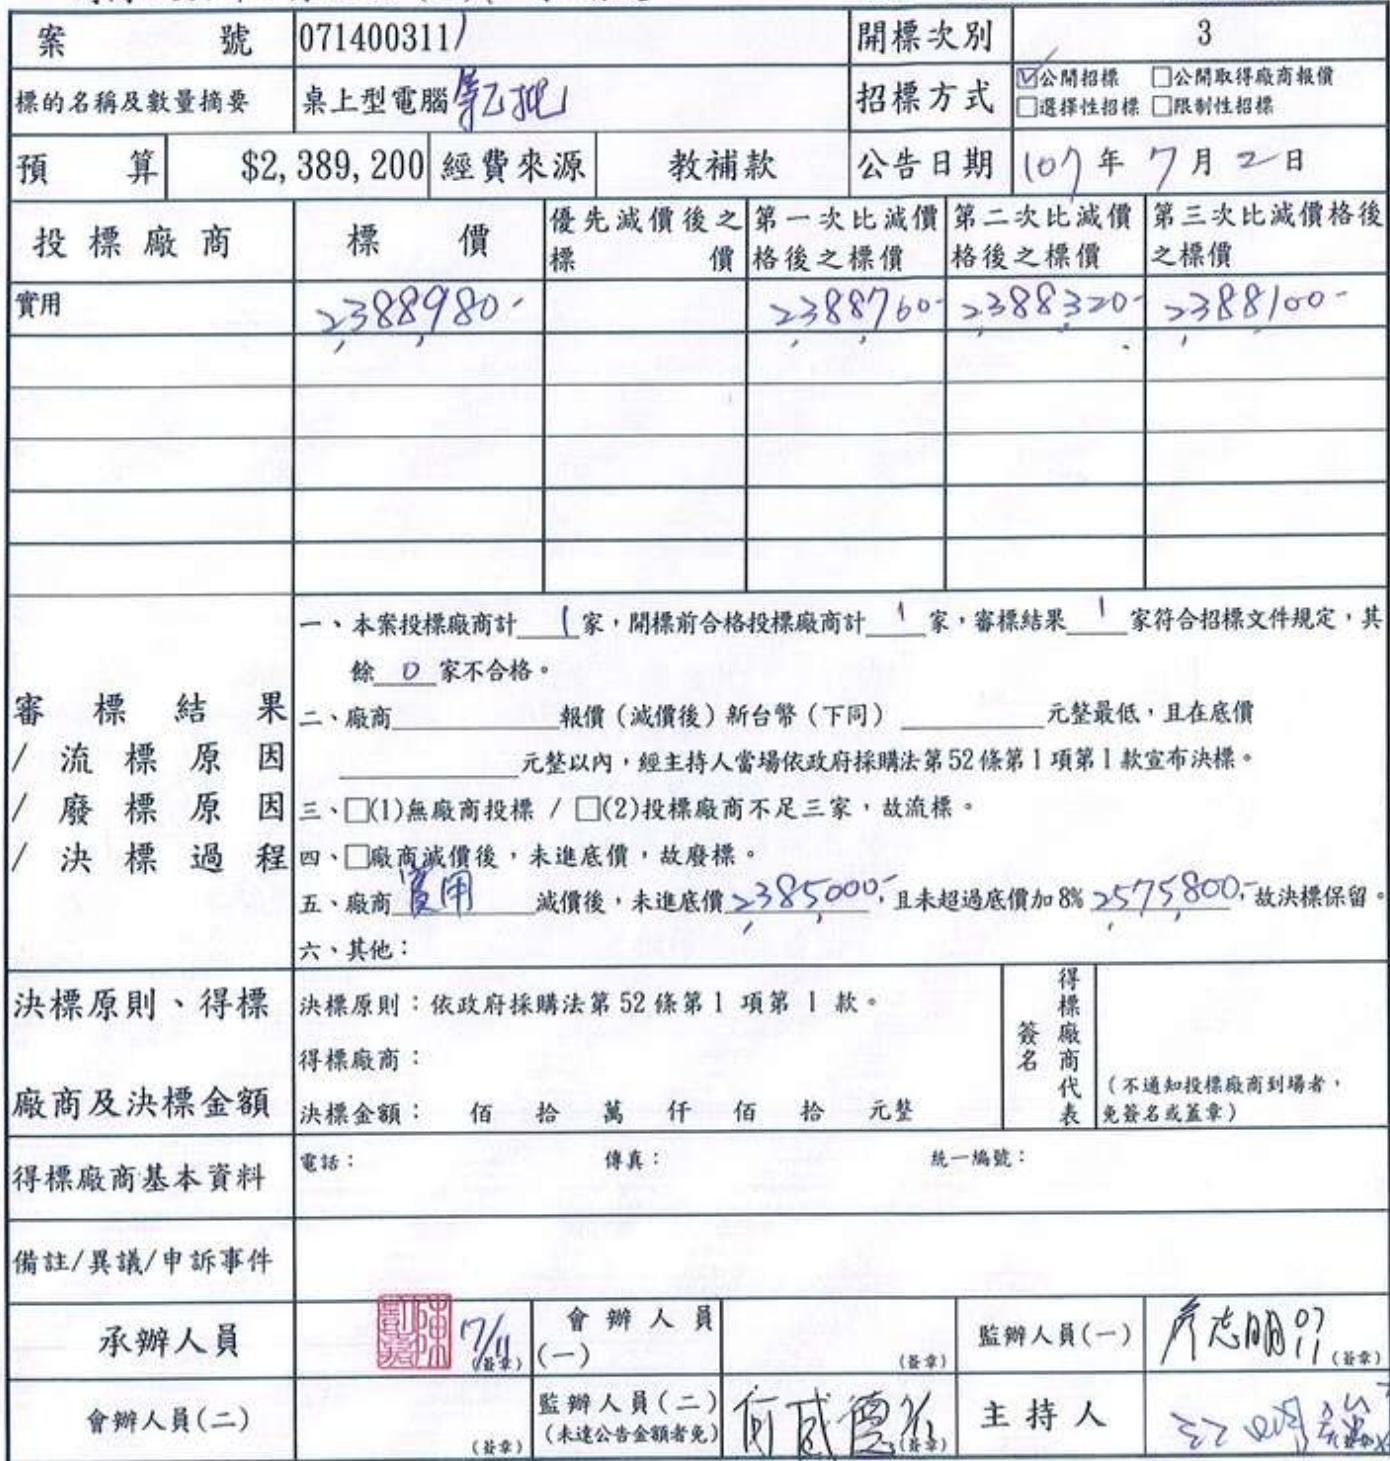 案 號 0714003111 開標次別 3
標的名稱及數量摘要 桌上型電腦第乙批 招標方式 ☑公開招標 □公開取得廠商報價
□選擇性招標 □限制性招標
預 算 $2,389,200 經費來源 教補款 公告日期 107 年 7 月 2 日
投標廠商 標 價 優先減價後之標 價 第一次比減價格後之標價 第二次比減價格後之標價 第三次比減價格後之標價
實用 2,388,980- 2,388,760- 2,388,320- 2,388,100-
審標結果/流標原因/廢標原因/決標過程
一、本案投標廠商計 1 家,開標前合格投標廠商計 1 家,審標結果 1 家符合招標文件規定,其
餘 0 家不合格。
二、廠商 報價(減價後)新台幣(下同) 元整最低,且在底價
元整以內,經主持人當場依政府採購法第52條第1項第1款宣布決標。
三、□(1)無廠商投標 / □(2)投標廠商不足三家,故流標。
四、□廠商減價後,未進底價,故廢標。
五、廠商 實用 減價後,未進底價 2,385,000-,且未超過底價加8% 2,575,800-,故決標保留。
六、其他:
決標原則、得標廠商及決標金額
決標原則:依政府採購法第 52 條第 1 項第 1 款。
得標廠商:
決標金額: 佰 拾 萬 仟 佰 拾 元整
得標廠商代表簽名
(不通知投標廠商到場者,
免簽名或蓋章)
得標廠商基本資料 電話: 傳真: 統一編號:
備註/異議/申訴事件
承辦人員 (簽章) 會辦人員(一) (簽章) 監辦人員(一) (簽章)
會辦人員(二) (簽章) 監辦人員(二)
(未達公告金額者免) (簽章) 主持人